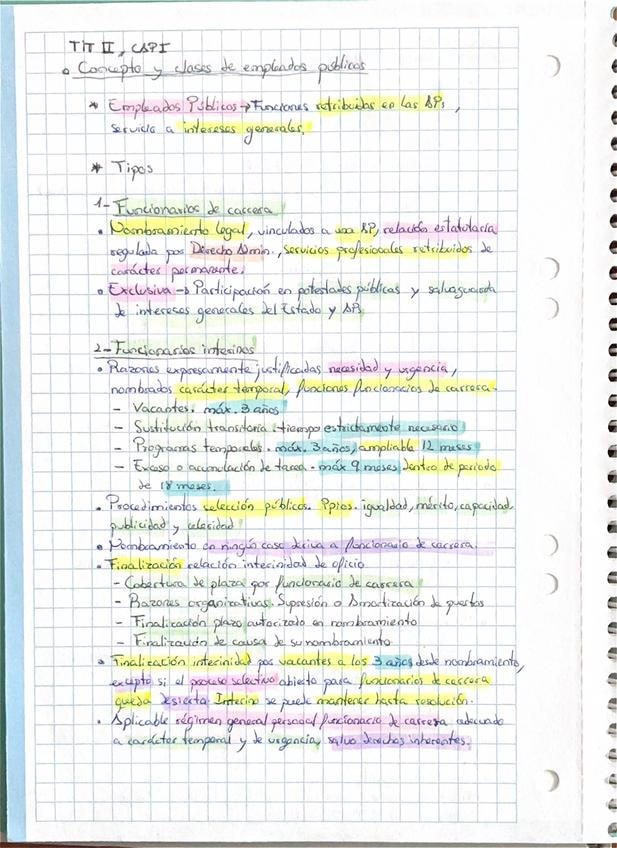 TIT II, CAP I
• Concepto y clases de empleados públicos
* Empleados Públicos → Funciones retribuidas en las APs,
servicio a intereses generales.
* Tipos
1- Funcionarios de carrera
• Nombramiento legal, vinculados a una AP, relación estatutaria
regulada por Derecho Admin., servicios profesionales retribuidos de
carácter permanente.
• Exclusiva → Participación en potestades públicas y salvaguarda
de intereses generales del Estado y AP.
2- Funcionarios interinos
• Razones expresamente justificadas necesidad y urgencia,
nombrados carácter temporal, funciones funcionarios de carrera.
- Vacantes. máx. 3 años
- Sustitución transitoria. tiempo estrictamente necesario
- Programas temporales. máx. 3 años, ampliable 12 meses
- Exceso o acumulación de tarea - máx 9 meses, dentro de periodo
de 18 meses.
• Procedimientos selección públicos. Ppios. igualdad, mérito, capacidad,
publicidad y celeridad
• Nombramiento en ningún caso deriva a funcionario de carrera.
• Finalización relación interinidad de oficio
- Cobertura de plaza por funcionario de carrera
- Razones organizativas. Supresión o Amortización de puestos
- Finalización plazo autorizado en nombramiento
- Finalización de causa de su nombramiento
• Finalización interinidad por vacantes a los 3 años desde nombramiento,
excepto si el proceso selectivo abierto para funcionarios de carrera
queda desierta. Interino se puede mantener hasta resolución.
• Aplicable régimen general personal funcionario de carrera adecuado
a carácter temporal y de urgencia, salvo derechos inherentes.